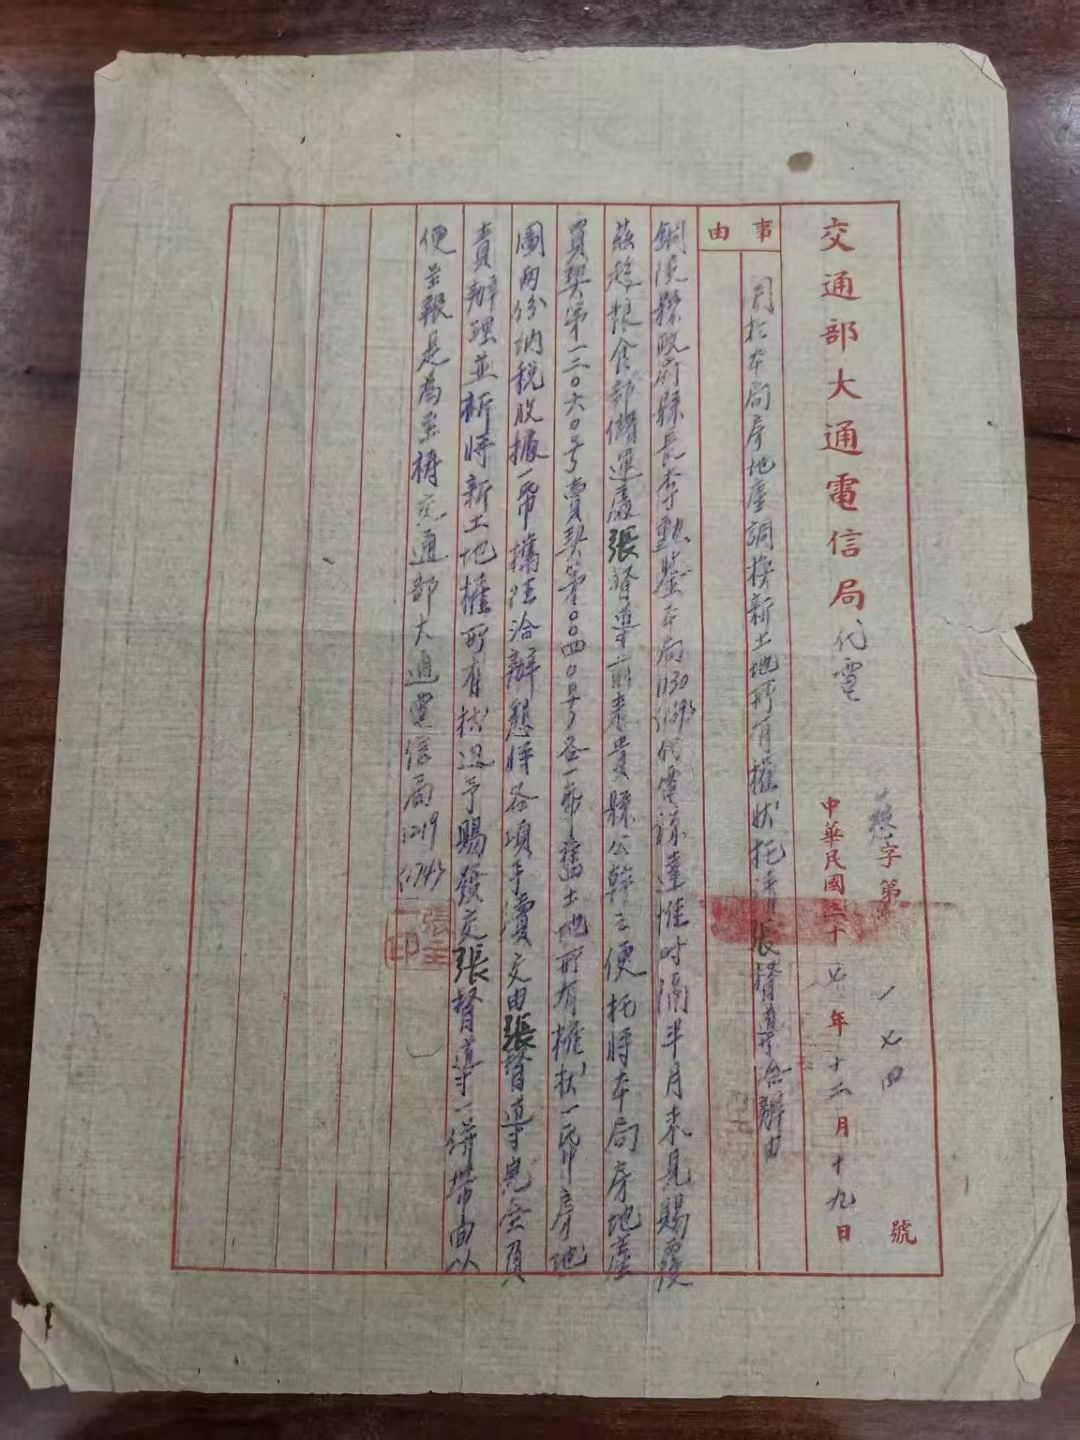 交通部大通電信局代電
字第一七四號
中華民國三十七年十二月十九日
事由
關於本局房地產調換新土地所有權狀托請張督導洽辦由
銅陵縣政府縣長李勳鑒本局1130代電諒達惟時隔半月未見賜覆
茲趁粮食部儲運處張督導前來貴縣公幹之便托將本局房地產
買契第一三〇六〇号賣契第〇〇四〇号各一紙舊土地所有權狀一帋房地
圖兩份納稅收據一帋攜往洽辦懇將各項手續交由張督導完全負
責辦理並祈將新土地權所有狀迅予賜發交張督導一併帶由以
便呈報是為至禱交通部大通電信局1219
張主
印